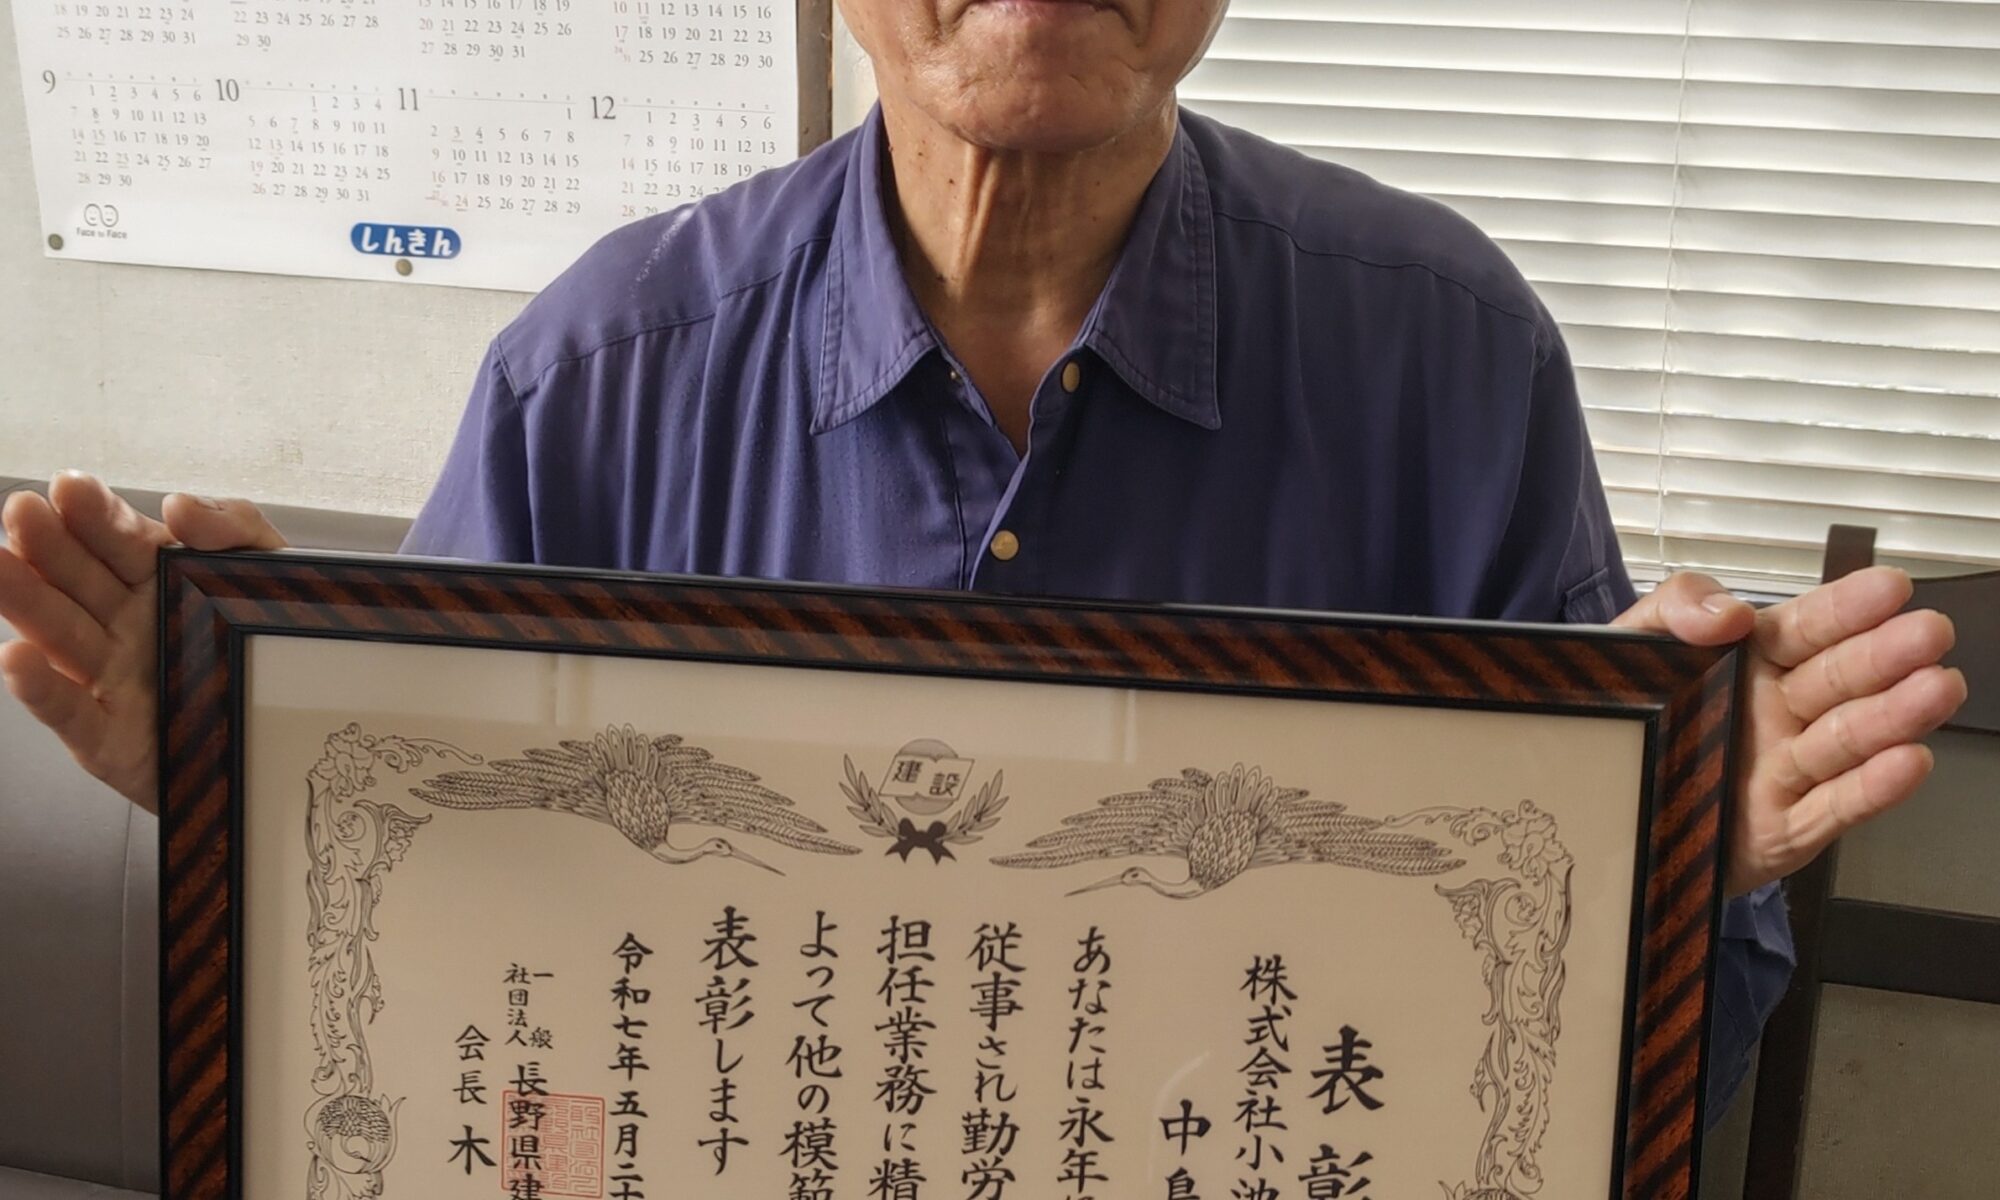 18 19 20 21 22 23 24
25 26 27 28 29 30 31
22 23 24 25 26 27 28
29 30
13 14 15 16 17 18 19
20 21 22 23 24 25 26
27 28 29 30 31
10 11 12 13 14 15 16
17 18 19 20 21 22 23
24/31 25 26 27 28 29 30
9
1 2 3 4 5 6
7 8 9 10 11 12 13
14 15 16 17 18 19 20
21 22 23 24 25 26 27
28 29 30
10
1 2 3 4
5 6 7 8 9 10 11
12 13 14 15 16 17 18
19 20 21 22 23 24 25
26 27 28 29 30 31
11
1
2 3 4 5 6 7 8
9 10 11 12 13 14 15
16 17 18 19 20 21 22
24 25 26 27 28 29
12
1 2 3 4 5 6
7 8 9 10 11 12 13
14 15 16 17 18 19
21 22 23 24
28 29
Face to Face
しんきん
建設
表彰
株式会社小池
中島
あなたは永年
従事され勤労
担任業務に精
よって他の模範
表彰します
令和七年五月二十
一般社団法人 長野県建
会長 木